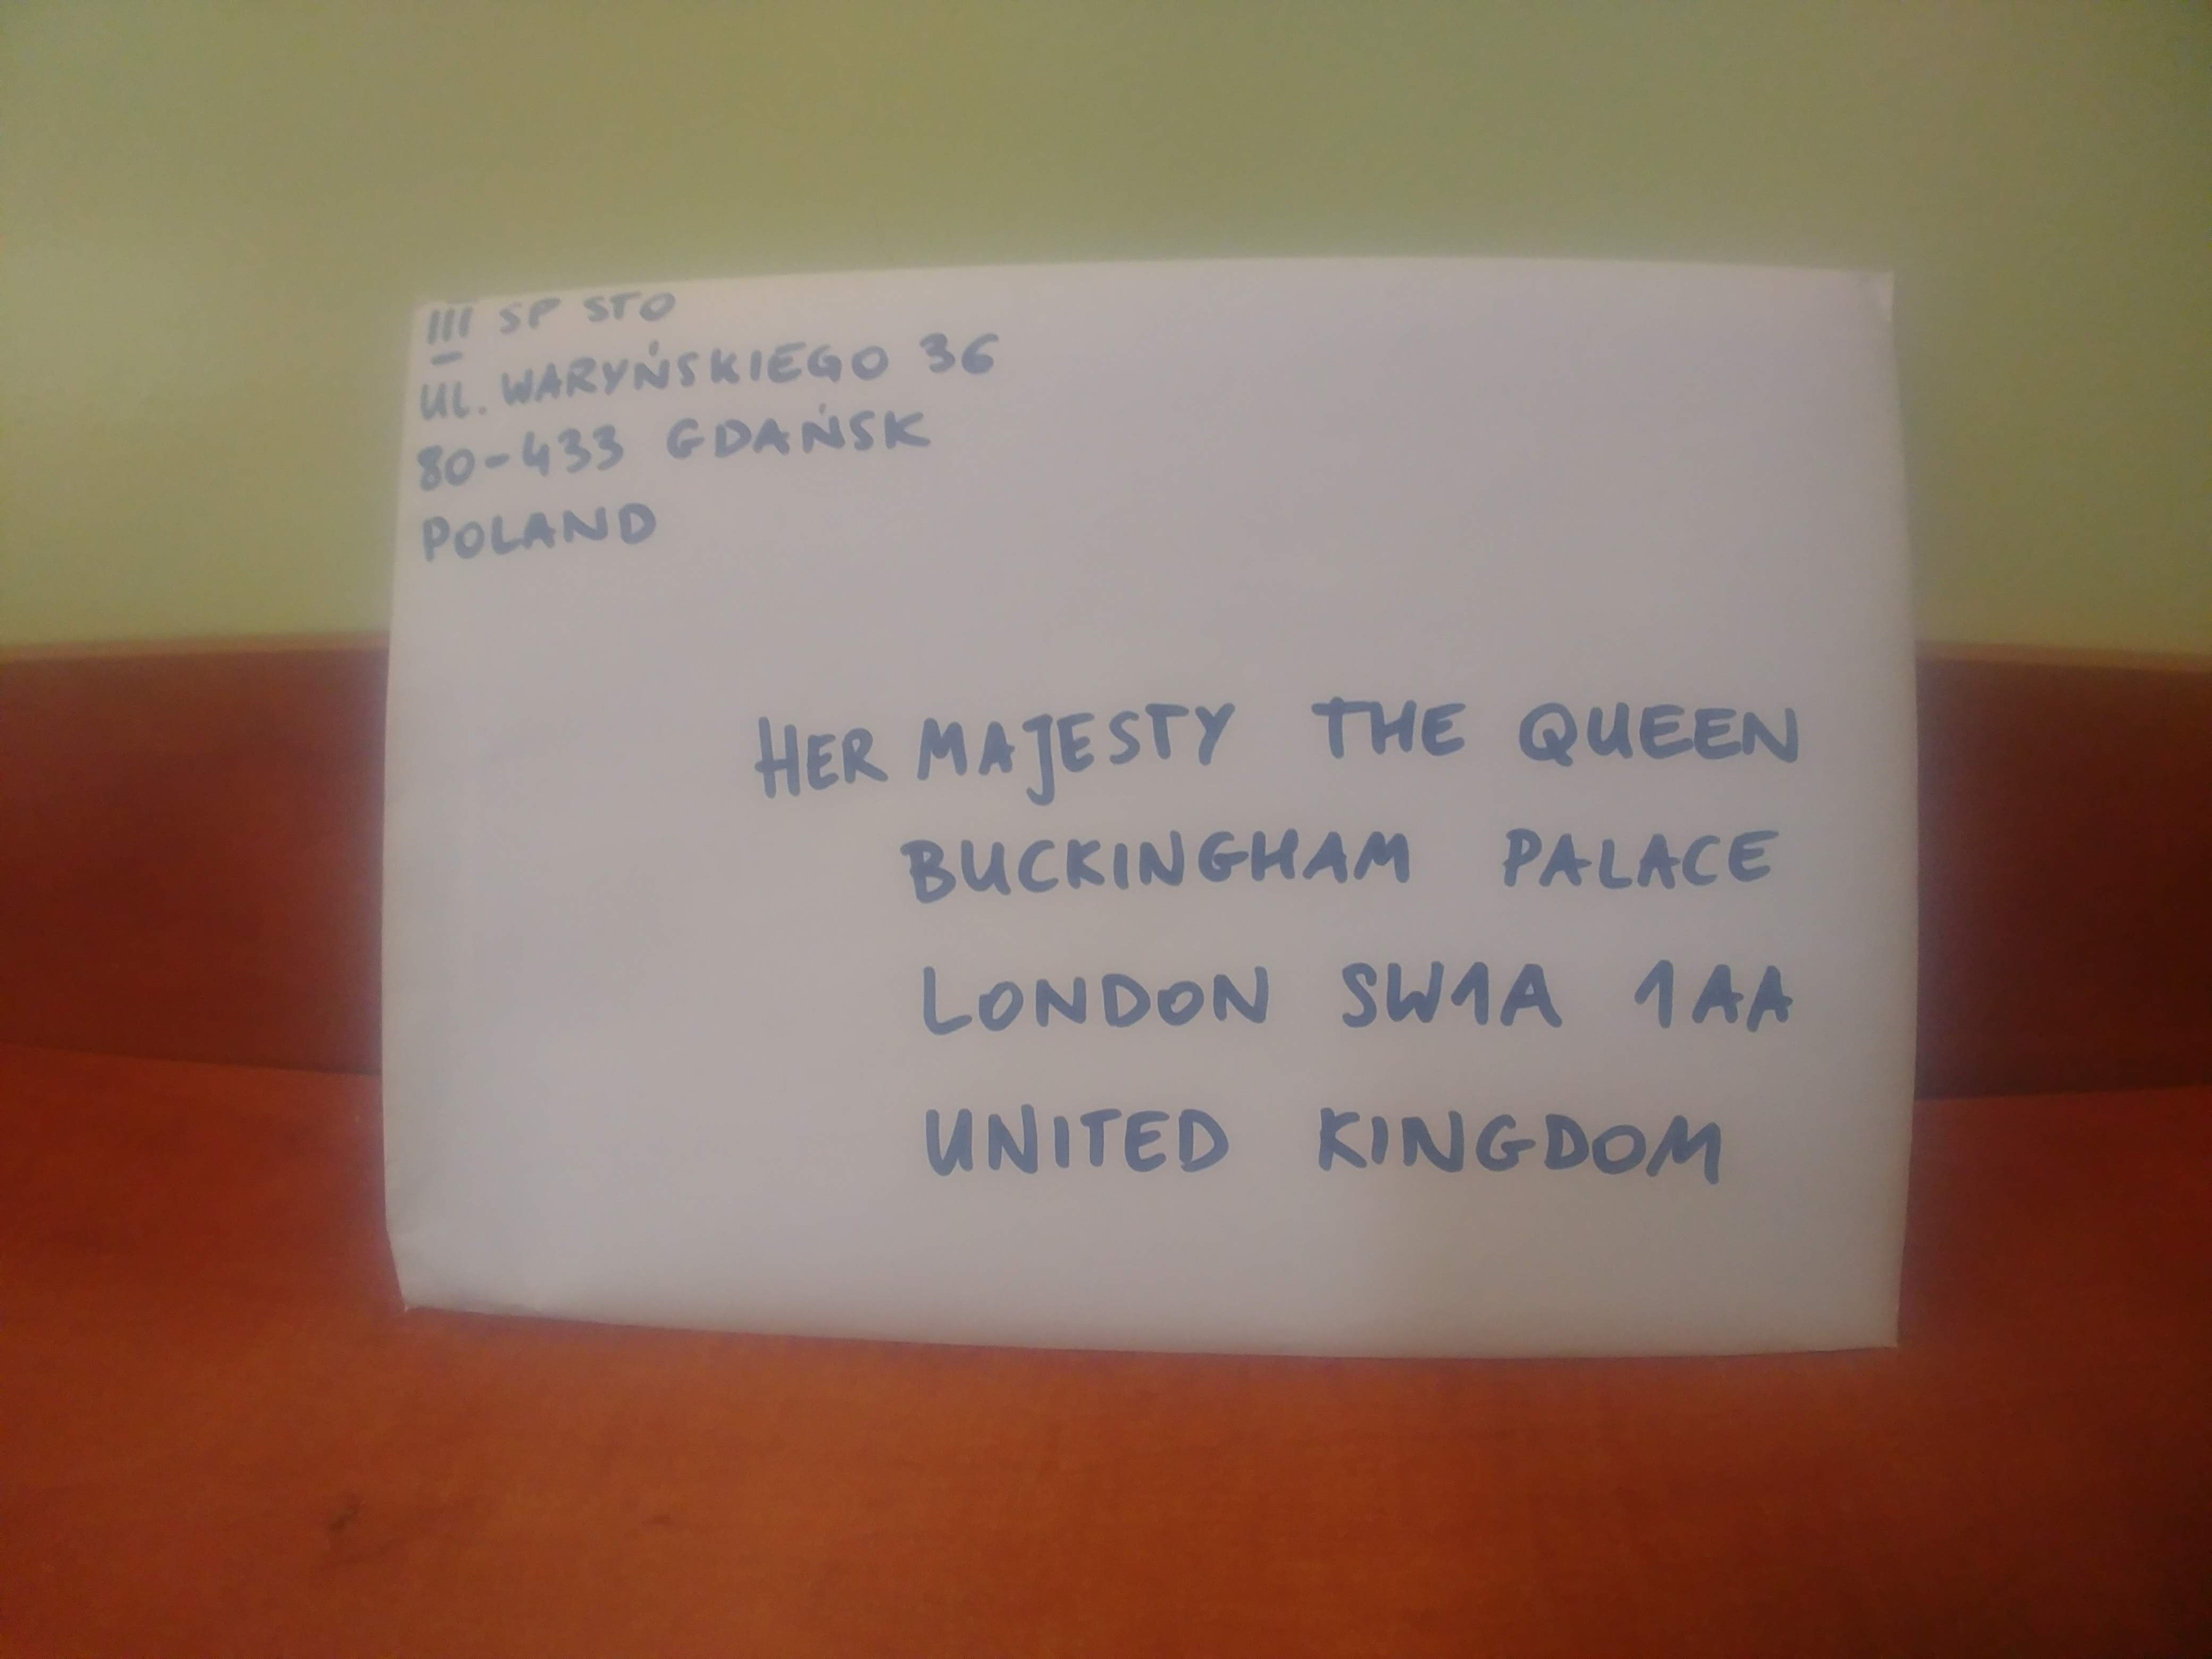 III SP STO
UL. WARYŃSKIEGO 36
80-433 GDAŃSK
POLAND
HER MAJESTY THE QUEEN
BUCKINGHAM PALACE
LONDON SW1A 1AA
UNITED KINGDOM